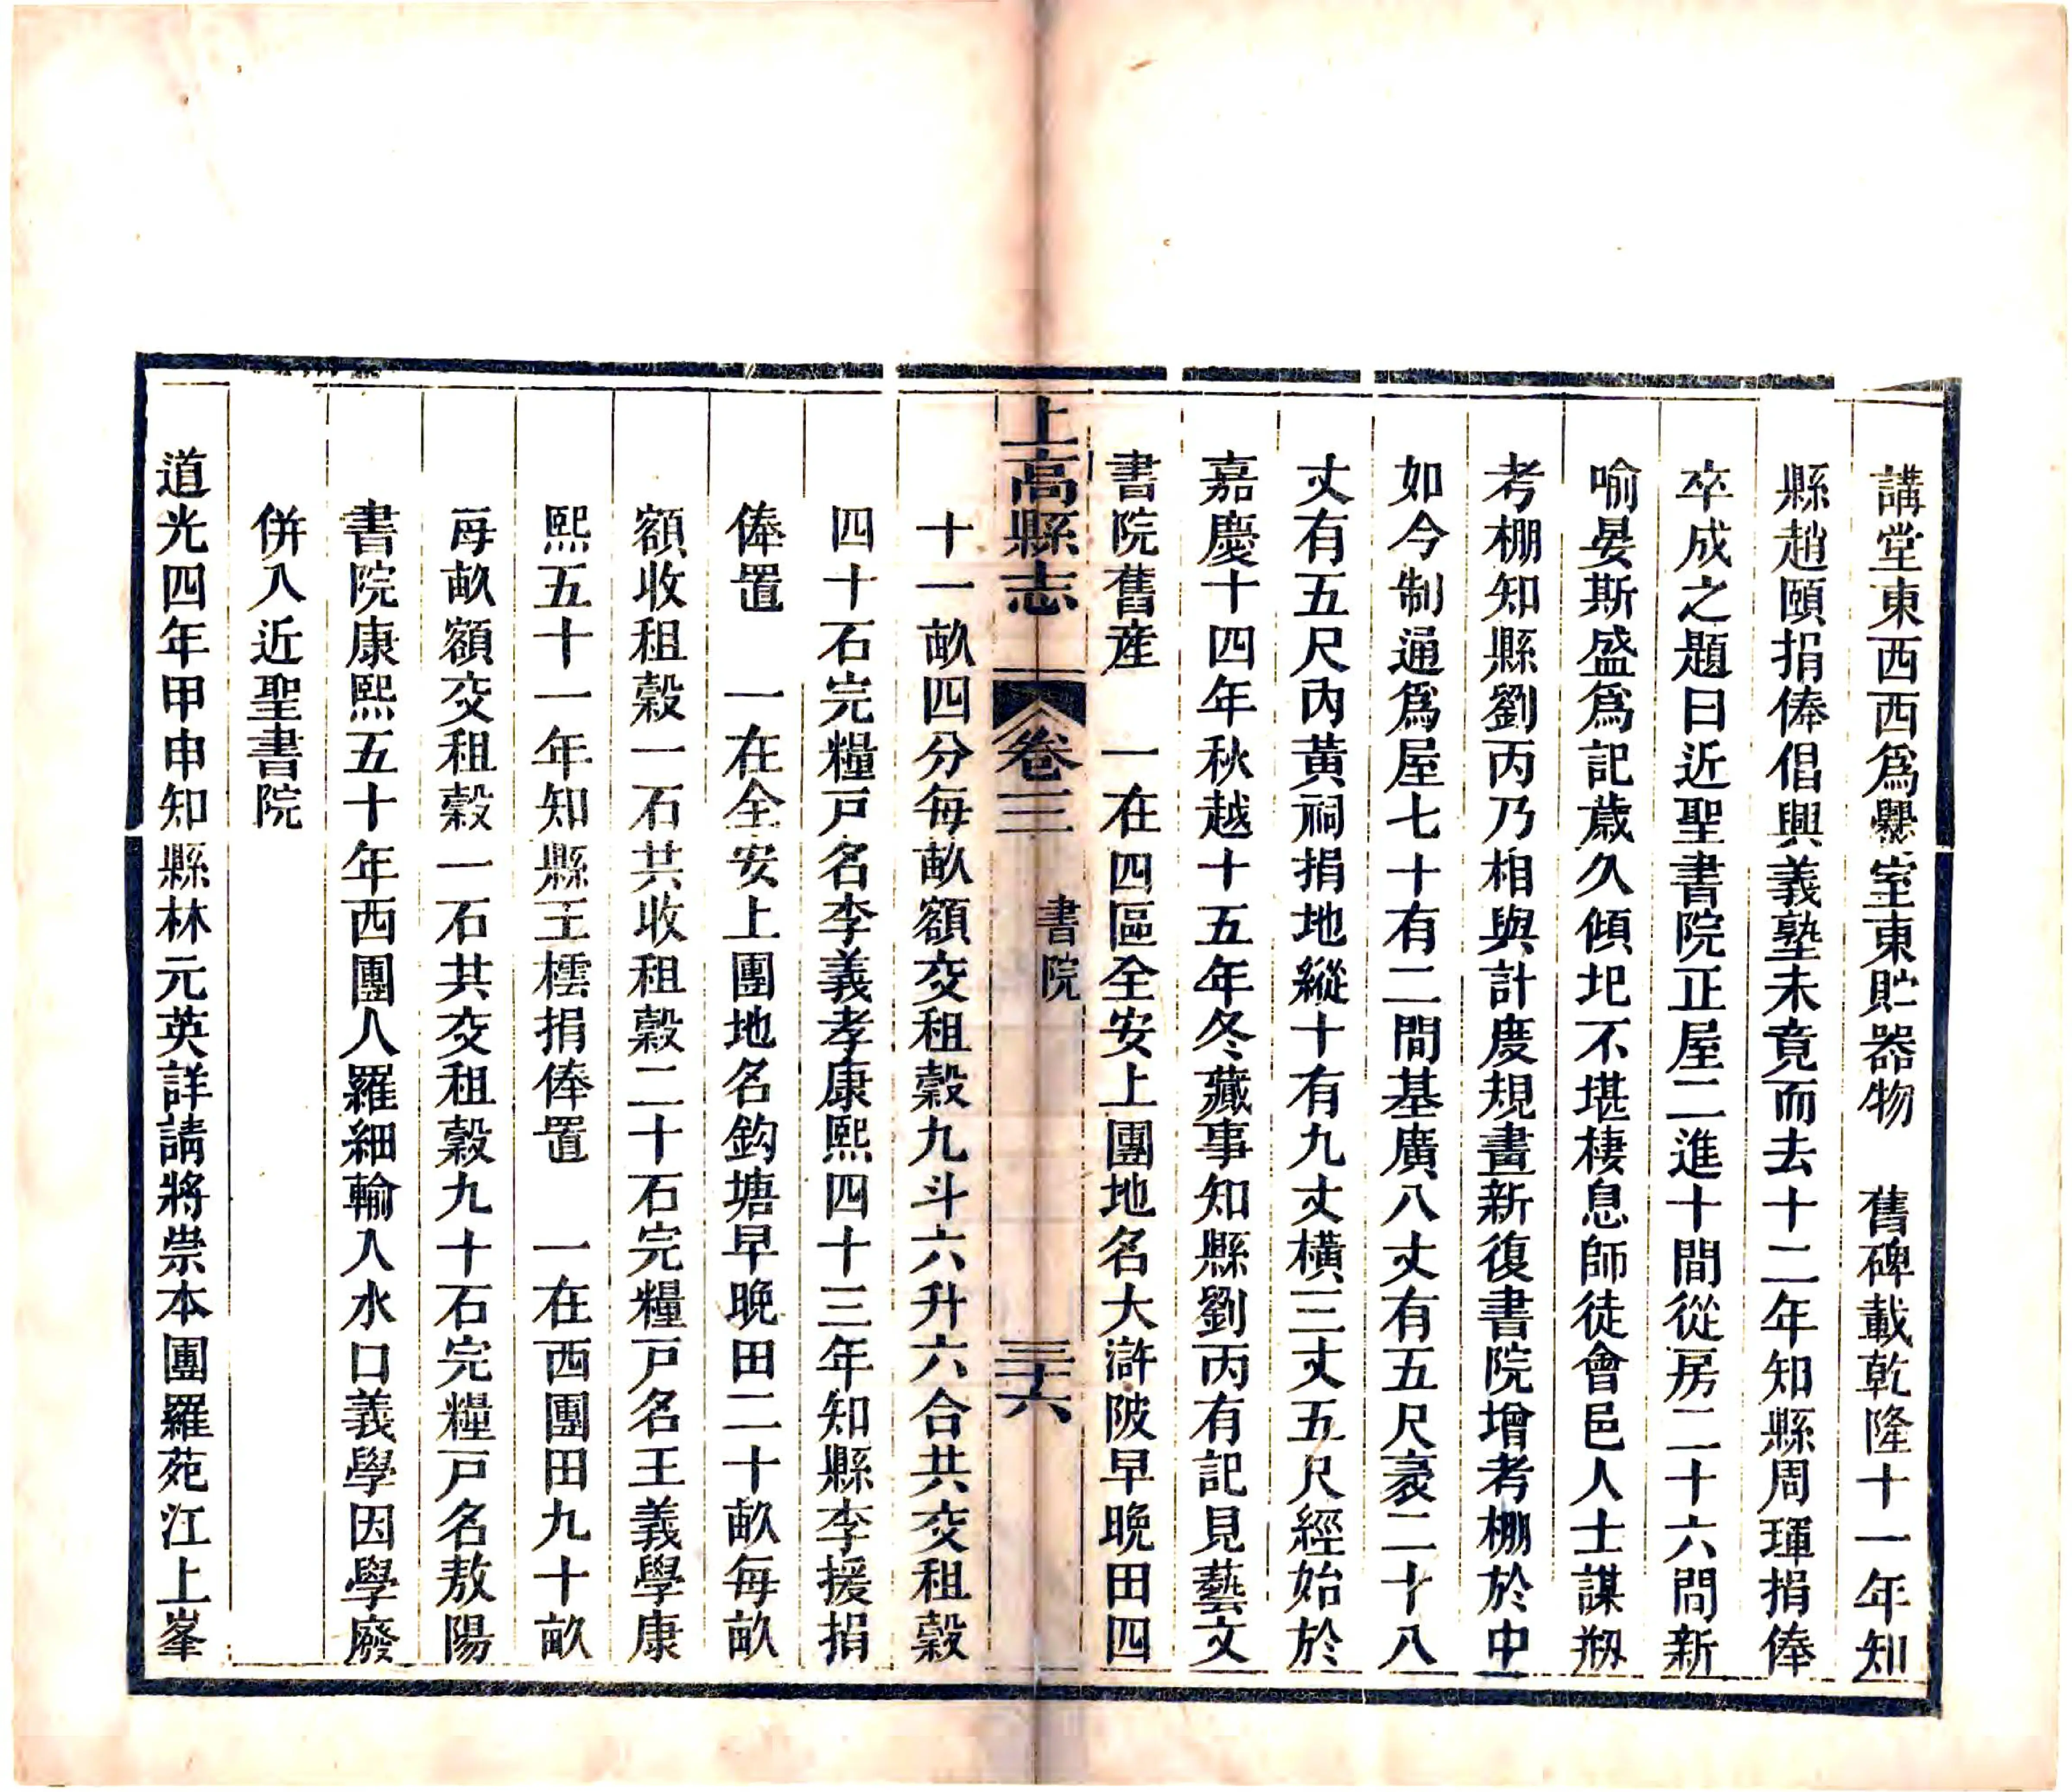 講堂東西西爲爨室東貯器物　舊碑載乾隆十一年知
縣趙頤捐俸倡興義塾未竟而去十二年知縣周琿捐俸
卒成之題曰近聖書院正屋二進十間從房二十六間新
喻晏斯盛爲記歲久傾圯不堪棲息師徒會邑人士謀剏
考棚知縣劉丙乃相與計度規畫新復書院增考棚於中
如今制通爲屋七十有二間基廣八丈有五尺袤二十八
丈有五尺內黃祠捐地縱十有九丈橫三丈五尺經始於
嘉慶十四年秋越十五年冬蕆事知縣劉丙有記見藝文
書院舊產　一在四區全安上團地名大滸陂早晚田四
上高縣志　卷三　書院　三十六
十一畝四分每畝額交租穀九斗六升六合共交租穀
四十石完糧戸名李義孝康熙四十三年知縣李援捐
俸置　一在全安上團地名鈎塘早晚田二十畝每畝
額收租穀一石共收租穀二十石完糧戸名王義學康
熙五十一年知縣王橒捐俸置　一在西團田九十畝
每畝額交租穀一石共交租穀九十石完糧戸名敖陽
書院康熙五十年西團人羅細輸入水口義學因學廢
併入近聖書院
道光四年甲申知縣林元英詳請將崇本團羅苑江上峯